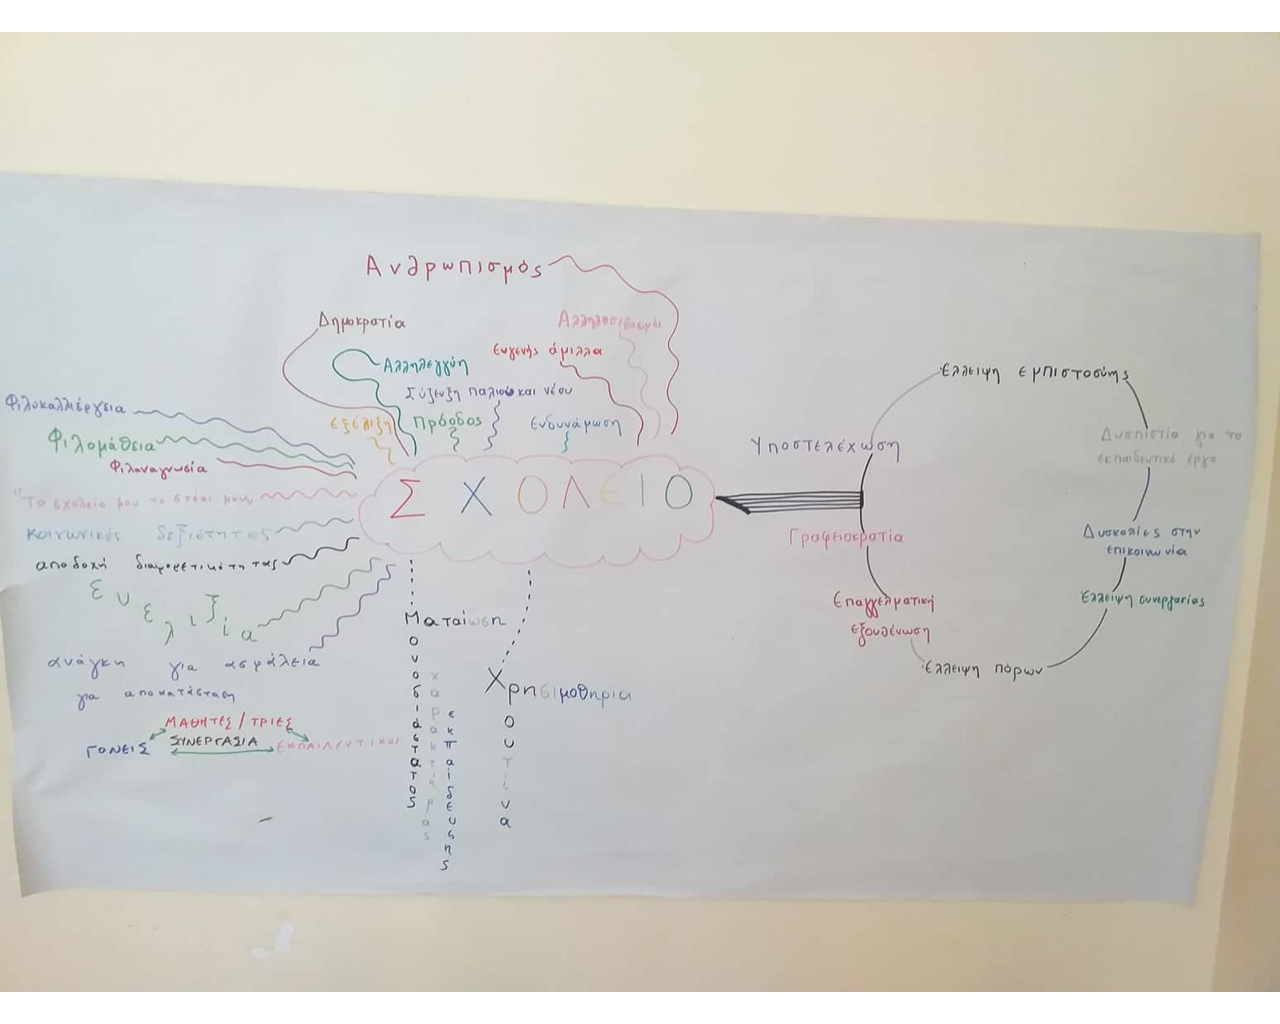 Ανθρωπισμός
Δημοκρατία
Αλληλοσεβασμός
Ευγενής άμιλλα
Αλληλεγγύη
Σύζευξη παλιού και νέου
Εξέλιξη
Πρόοδος
Ενδυνάμωση
Φιλοκαλλιέργεια
Φιλομάθεια
Φιλαναγνωσία
"Το σχολείο μου το σπίτι μου"
κοινωνικές δεξιότητες
αποδοχή διαφορετικότητας
ευελιξία
ανάγκη για ασφάλεια
για αποκατάσταση
ΜΑΘΗΤΕΣ / ΤΡΙΕΣ
ΣΥΝΕΡΓΑΣΙΑ
ΓΟΝΕΙΣ
ΕΚΠΑΙΔΕΥΤΙΚΟΙ
ΣΧΟΛΕΙΟ
Ματαίωση
Μονοδιάστατος
χαρακτήρας
εκπαίδευσης
Χρησιμοθηρία
Ρουτίνα
Υποστελέχωση
Γραφειοκρατία
Επαγγελματική
εξουθένωση
Έλλειψη πόρων
Έλλειψη συνεργασίας
Δυσκολίες στην
επικοινωνία
Δυσπιστία για το
εκπαιδευτικό έργο
Έλλειψη εμπιστοσύνης